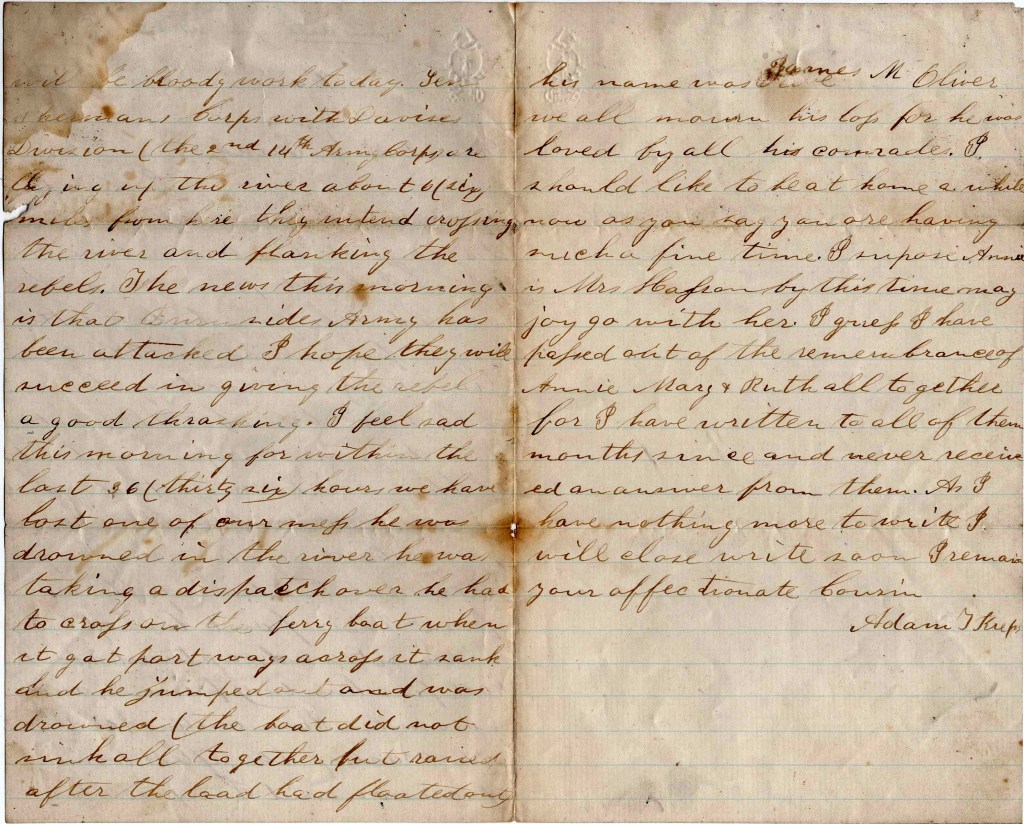 be bloody work today. Gen
Shermans Corps with Davises
Division (the 2nd 14th Army Corps are
lying up the river about 6 (six)
miles from here they intend crossing
the river and flanking the
rebels. The news this morning
is that Burnsides Army has
been attacked I hope they will
succeed in giving the rebel
a good thrashing. I feel sad
this morning for within the
last 36 (thirty six) hours we have
lost one of our mess he was
drowned in the river he was
taking a dispatch over he had
to cross on the ferry boat when
it got part ways across it sank
and he jumped out and was
drowned (the boat did not
sink all together but raised
after the load had floated out)
his name was James M Oliver
we all mourn his loss for he was
loved by all his comrades. I
should like to be at home a while
now as you say you are having
such a fine time. I supose Annie
is Mrs Hasson by this time may
joy go with her. I guess I have
passed out of the remembrance of
Annie Mary & Ruth all together
for I have written to all of them
months since and never receiv
ed an answer from them. As I
have nothing more to write I
will close write soon I remain
your affectionate Cousin
Adam T Kreps